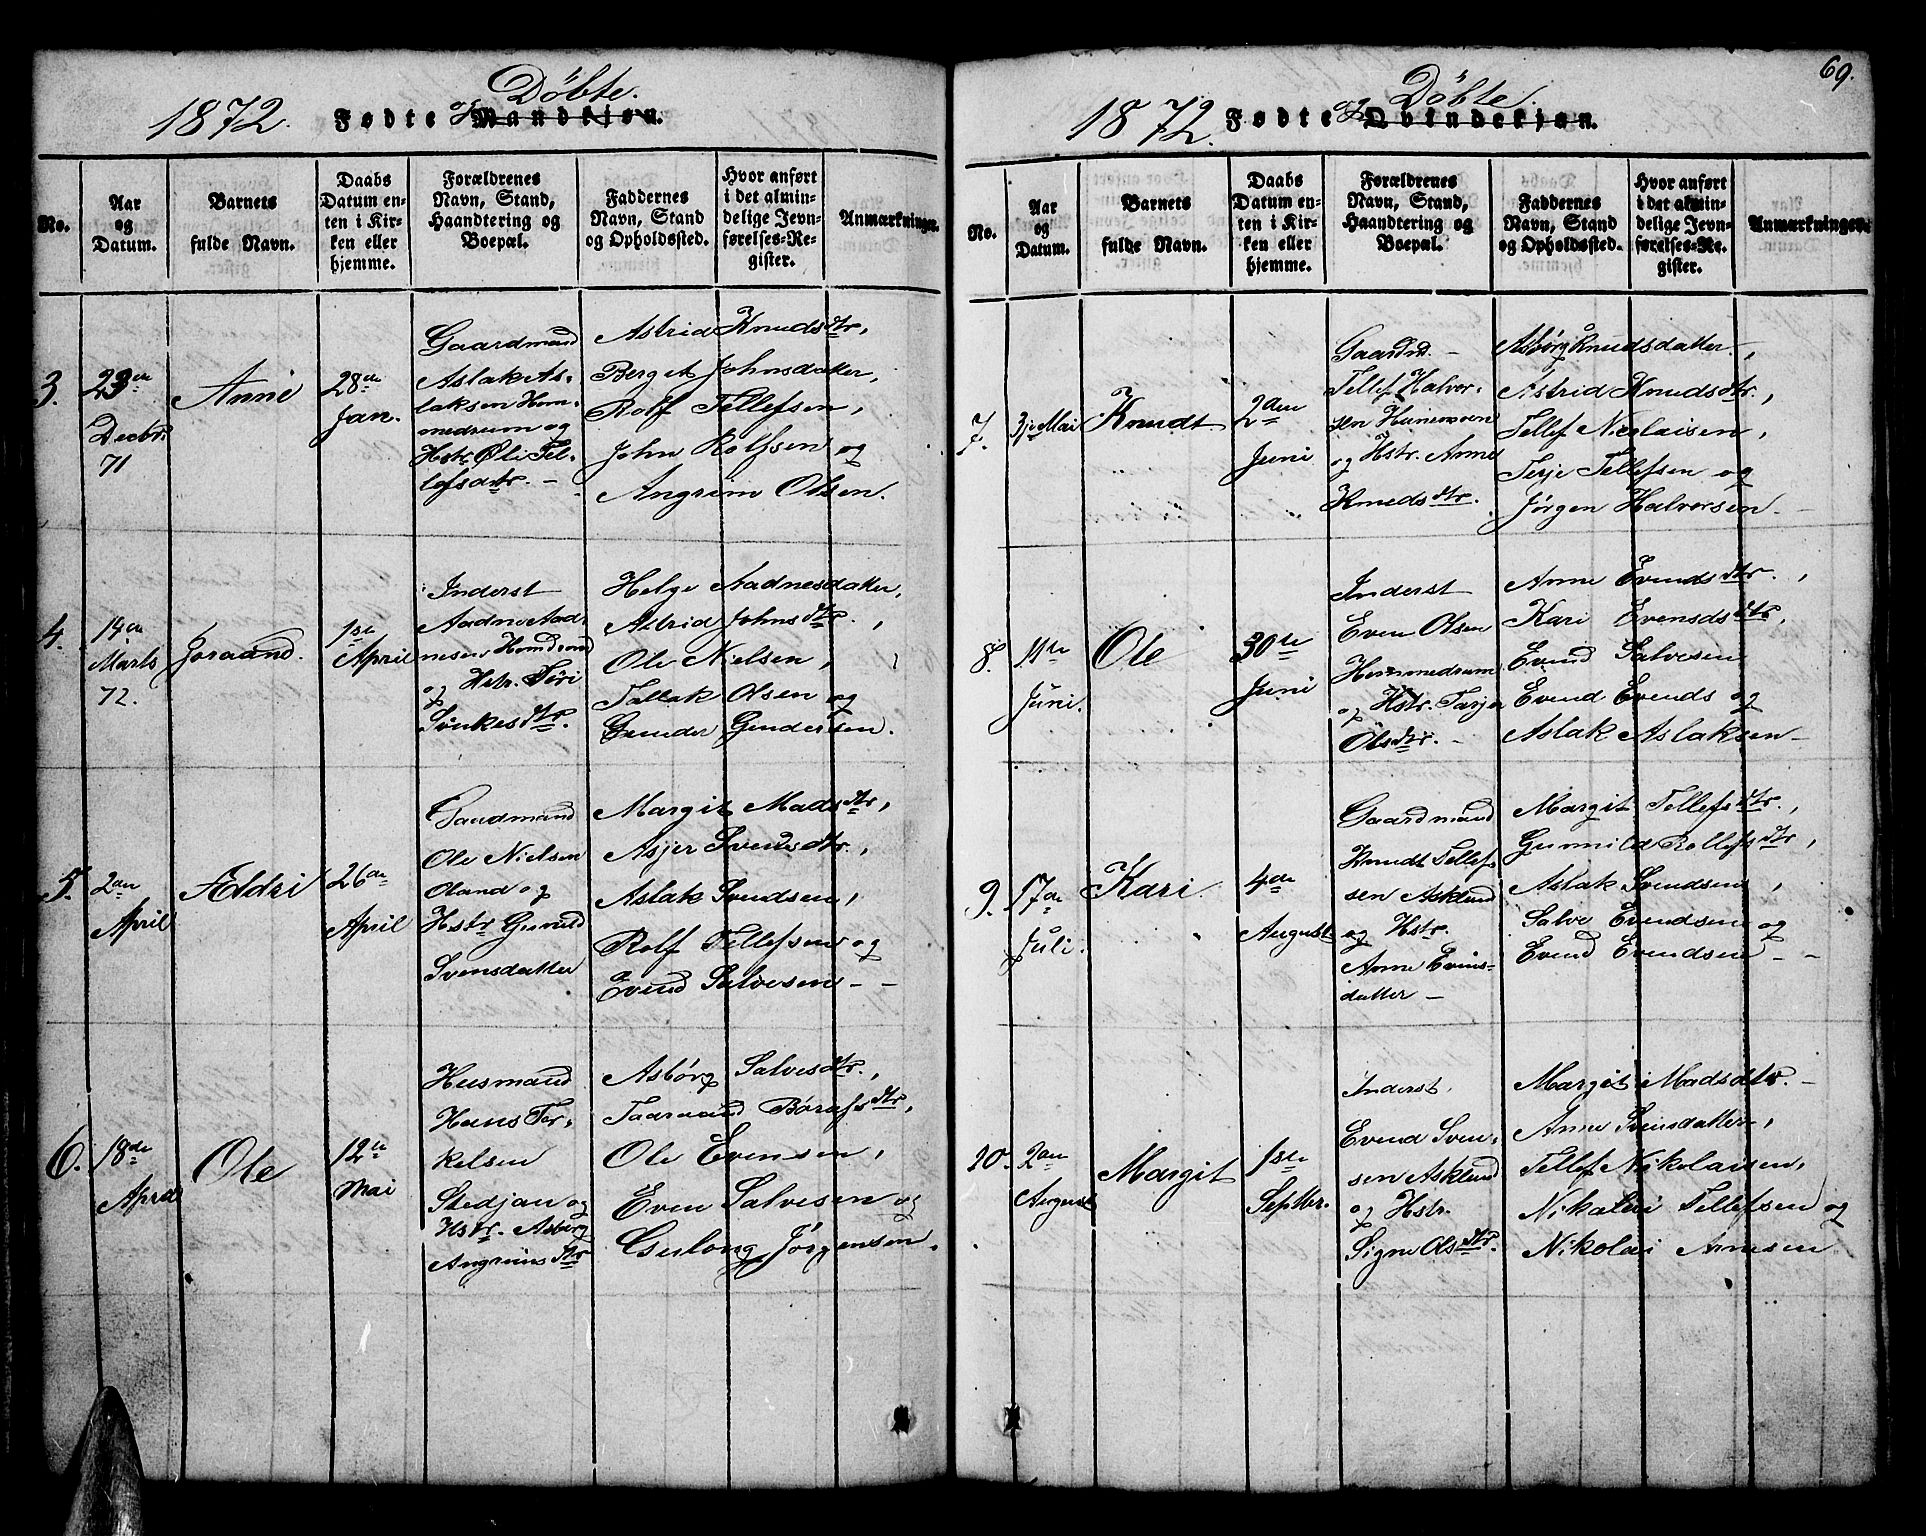 1872. Fødte og Døbte.
Mandkjøn.
No.
Aar
og
Datum.
Barnets
fulde Navn.
Daabs
Datum en-
ten i Kir-
ken eller
hjemme.
Forældrenes
Navn, Stand,
Haandtering og
Boepæl.
Faddernes
Navn, Stand
og Opholdssted.
Hvor anført
i det almin-
delige Jevn-
førelses-Re-
gister.
Anmærkninger.
3.
23de
Decbr.
71
Anne
28de
Jan.
Gaardmand
Aslak As-
laksen Hom-
medrum og
Hstr. Øli Tel-
lefsdtr. -
Astrid Knudsdtr,
Berget Johnsdatter,
Rolf Tellefsen,
John Rolfsen og
Angrim Olsen.
4.
14de
Marts
72.
Joraand.
1ste
April
Inderst
Aadne Aad-
nesen
og Hstr. Siri
dtr.
Helge Aadnesdatter,
Astrid Johnsdtr.,
Ole Nielsen,
Tallak Olsen og
Gunder Gundersen.
5.
2den
April
Ældri
26de
April
Gaardmand
Ole Nielsen
Oland og
Hstr Gunild
Svensdatter
Margit Madsdtr,
Asjer Svendsdtr.,
Aslak Svendsen,
Rolf Tellefsen og
Evend Salvesen - -
6.
18de
April
Ole
12te
Mai
Husmand
Hans Tor-
kelsen
Stedjan og
Hstr. Asbørg
Angrimsdtr
Asbørg Salvesdtr.,
Taaraand Børufsdtr,
Ole Evensen,
Even Salvesen og
Gulong Jørgensen.
69.
1872. Fødte og Døbte.
Qvindekjøn.
No.
Aar
og
Datum.
Barnets
fulde Navn.
Daabs
Datum en-
ten i Kir-
ken eller
hjemme.
Forældrenes
Navn, Stand,
Haandtering og
Boepæl.
Faddernes
Navn, Stand
og Opholdssted.
Hvor anført
i det almin-
delige Jevn-
førelses-Re-
gister.
Anmærkninger.
7.
3je Mai
Knudt
2den
Juni
Gaardmd. -
Tellef Halvor-
sen
og Hstr. Anne
Knudsdtr.
Asbørg Knudsdatter,
Astrid Knudsdtr.,
Tellef Nicolaisen,
Terje Tellefsen og
Jørgen Halvorsen -
8.
11te
Juni.
Ole
30te
Juni
Inderst
Even Olsen
Hommedrum
og Hstr. Tarjer
Olsdtr. -
Anne Evendsdtr.,
Kari Evensdsdtr,
Evend Salvesen
Evend Evends og
Aslak Aslaksen -
9.
17de
Juli.
Kari
4de
August
Gaardmand
Knudt Tellef-
sen Asklund
og Hstr.
Anne Evins-
datter -
Margit Tellefsdtr.,
Gunnild Rollefsdtr,
Aslak Svendsen,
Salve Evendsen og
Evend Evendsen - -
10.
2den
August
Margit
1ste
Septbr.
Inderst
Evend Sven-
sen Asklund
og Hstr.
Signe Olsdtr.
Margit Madsdtr. -
Anne Svensdatter,
Tellef Nikolaisen,
Nikolai Tellefsen og
Nikolai Arnesen